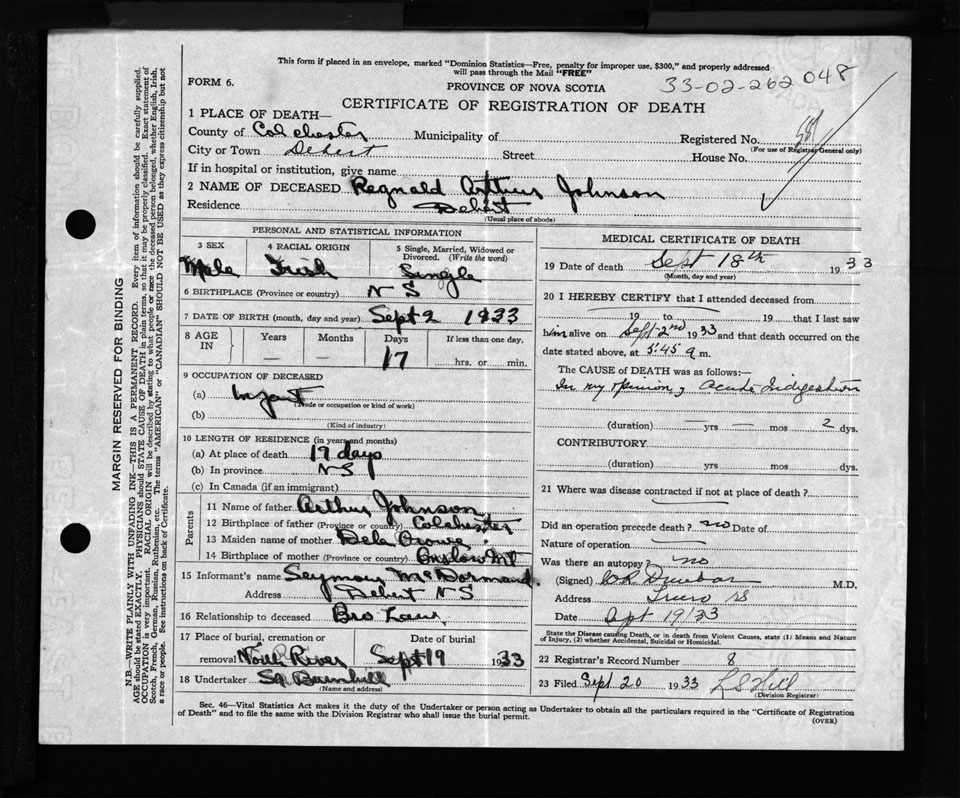 This form if placed in an envelope, marked "Dominion Statistics—Free, penalty for improper use, $300," and properly addressed
will pass through the Mail "FREE"
33-02-262048
FORM 6.
PROVINCE OF NOVA SCOTIA
CERTIFICATE OF REGISTRATION OF DEATH
1 PLACE OF DEATH—
County of Colchester Municipality of Registered No.
(For use of Registrar General only)
City or Town Debert Street House No.
If in hospital or institution, give name
2 NAME OF DECEASED Regnald Arthur Johnson
Residence Debert
(Usual place of abode)
PERSONAL AND STATISTICAL INFORMATION
3 SEX 4 RACIAL ORIGIN 5 Single, Married, Widowed or Divorced. (Write the word)
Male Irish Single
6 BIRTHPLACE (Province or country) N S
7 DATE OF BIRTH (month, day and year) Sept 2 1933
8 AGE IN Years Months Days If less than one day.
— — 17 hrs. or min.
9 OCCUPATION OF DECEASED
(a) Infant
(Trade or occupation or kind of work)
(b)
(Kind of industry)
10 LENGTH OF RESIDENCE (in years and months)
(a) At place of death 17 days
(b) In province N S
(c) In Canada (if an immigrant)
Parents
11 Name of father Arthur Johnson
12 Birthplace of father (Province or country) Colchester
13 Maiden name of mother Dela Crowe
14 Birthplace of mother (Province or country) Onslow Mt
15 Informant's name Seymour McDormand
Address Debert N S
16 Relationship to deceased Bro Law
17 Place of burial, cremation or removal Date of burial
River Sept 19 1933
18 Undertaker
(Name and address)
MEDICAL CERTIFICATE OF DEATH
19 Date of death Sept 18th 1933
(Month, day and year)
20 I HEREBY CERTIFY that I attended deceased from
19 to 19 that I last saw
him alive on Sept 2nd 1933 and that death occurred on the
date stated above, at 5:45 a m.
The CAUSE of DEATH was as follows:—
In my opinion, Acute Indigestion
(duration) — yrs — mos 2 dys.
CONTRIBUTORY
(duration) yrs mos dys.
21 Where was disease contracted if not at place of death?
Did an operation precede death? no Date of
Nature of operation
Was there an autopsy? no
(Signed) Dunbar M.D.
Address Truro NS
Date Sept 19/33
State the Disease causing Death, or in death from Violent Causes, state (1) Means and Nature
of Injury, (2) whether Accidental, Suicidal or Homicidal.
22 Registrar's Record Number 8
23 Filed Sept 20 1933 L S Hill
Division Registrar)
Sec. 46—Vital Statistics Act makes it the duty of the Undertaker or person acting as Undertaker to obtain all the particulars required in the "Certificate of Registration
of Death" and to file the same with the Division Registrar who shall issue the burial permit.
(OVER)
MARGIN RESERVED FOR BINDING
N.B.—WRITE PLAINLY WITH UNFADING INK—THIS IS A PERMANENT RECORD. Every item of information should be carefully supplied.
AGE should be stated EXACTLY. PHYSICIANS should STATE CAUSE OF DEATH in plain terms, so that it may be properly classified. Exact statement of
OCCUPATION is very important. RACIAL ORIGIN will be described by stating to what people or race the deceased person belonged, whether English, Irish,
Scotch, French, German, Russian, Ruthenian, etc. The terms "AMERICAN" or "CANADIAN" SHOULD NOT BE USED as they express citizenship but not
a race or people. See instructions on back of Certificate.